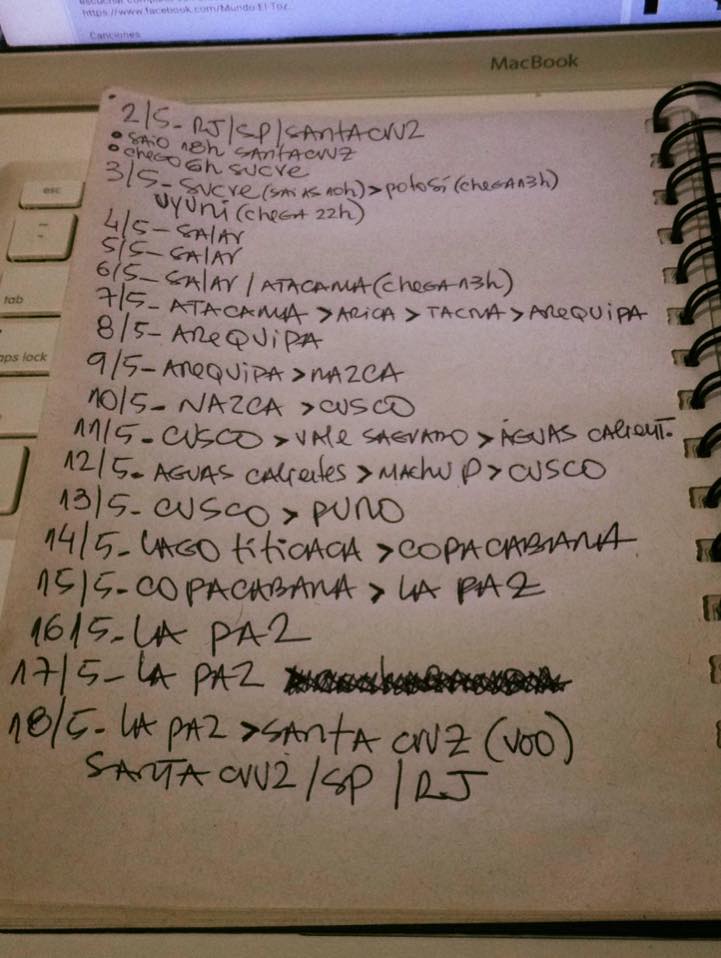 https://www.facebook.com/Mundo.El.Toz...
Canciones
MacBook
esc
tab
aps lock
2/5- RJ/SP/SANTA CRUZ
• SAIO 18h SANTA CRUZ
• CHEGO 6h SUCRE
3/5- SUCRE (SAI AS 10h) > POTOSÍ (CHEGA 13h)
UYUNI (CHEGA 22h)
4/5- SALAR
5/5- SALAR
6/5- SALAR / ATACAMA (CHEGA 13h)
7/5- ATACAMA > ARICA > TACNA > AREQUIPA
8/5- AREQUIPA
9/5- AREQUIPA > NAZCA
10/5- NAZCA > CUSCO
11/5- CUSCO > VALE SAGRADO > ÁGUAS CALIENT.
12/5- AGUAS CALIENTES > MACHU P > CUSCO
13/5- CUSCO > PUNO
14/5- LAGO TITICACA > COPACABANA
15/5- COPACABANA > LA PAZ
16/5- LA PAZ
17/5- LA PAZ
18/5- LA PAZ > SANTA CRUZ (VOO)
SANTA CRUZ / SP / RJ